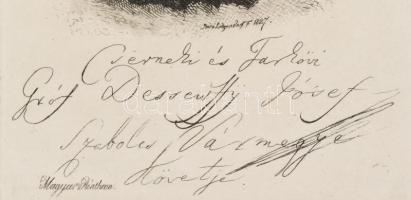 Cserneki és Tarkövi
Gróf Dessewffy Jósef
Szabolcs Vármegye
Követje.
Magyar Pantheon.